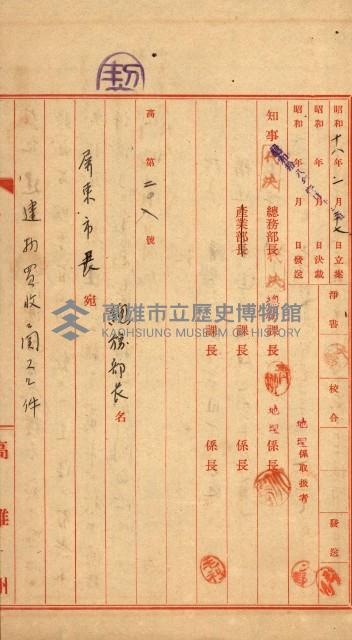 昭和十八年二月　日立案
昭和　年　月　日決裁
昭和　年　月　日發送
淨書
校合
發送
地理係取扱者
知事
代決
總務部長
課長
地理
係長
產業部長
課長
係長
課長
係長
高第二〇八號
總務部長名
屏東市長宛
建物買收ニ關スル件
高雄州
高雄市立歷史博物館
KAOHSIUNG MUSEUM OF HISTORY